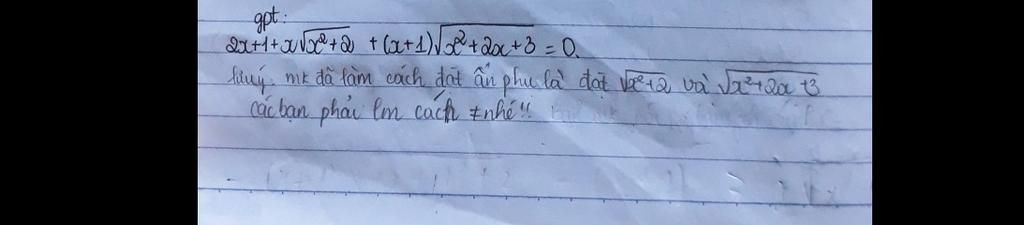 gpt:
2x+1+x√x²+2 + (x+1)√x²+2x+3 = 0.
lưu ý: mk đã làm cách đặt ẩn phụ là đặt √x²+2 và √x²+2x+3
các bạn phải lm cách ≠ nhé!!